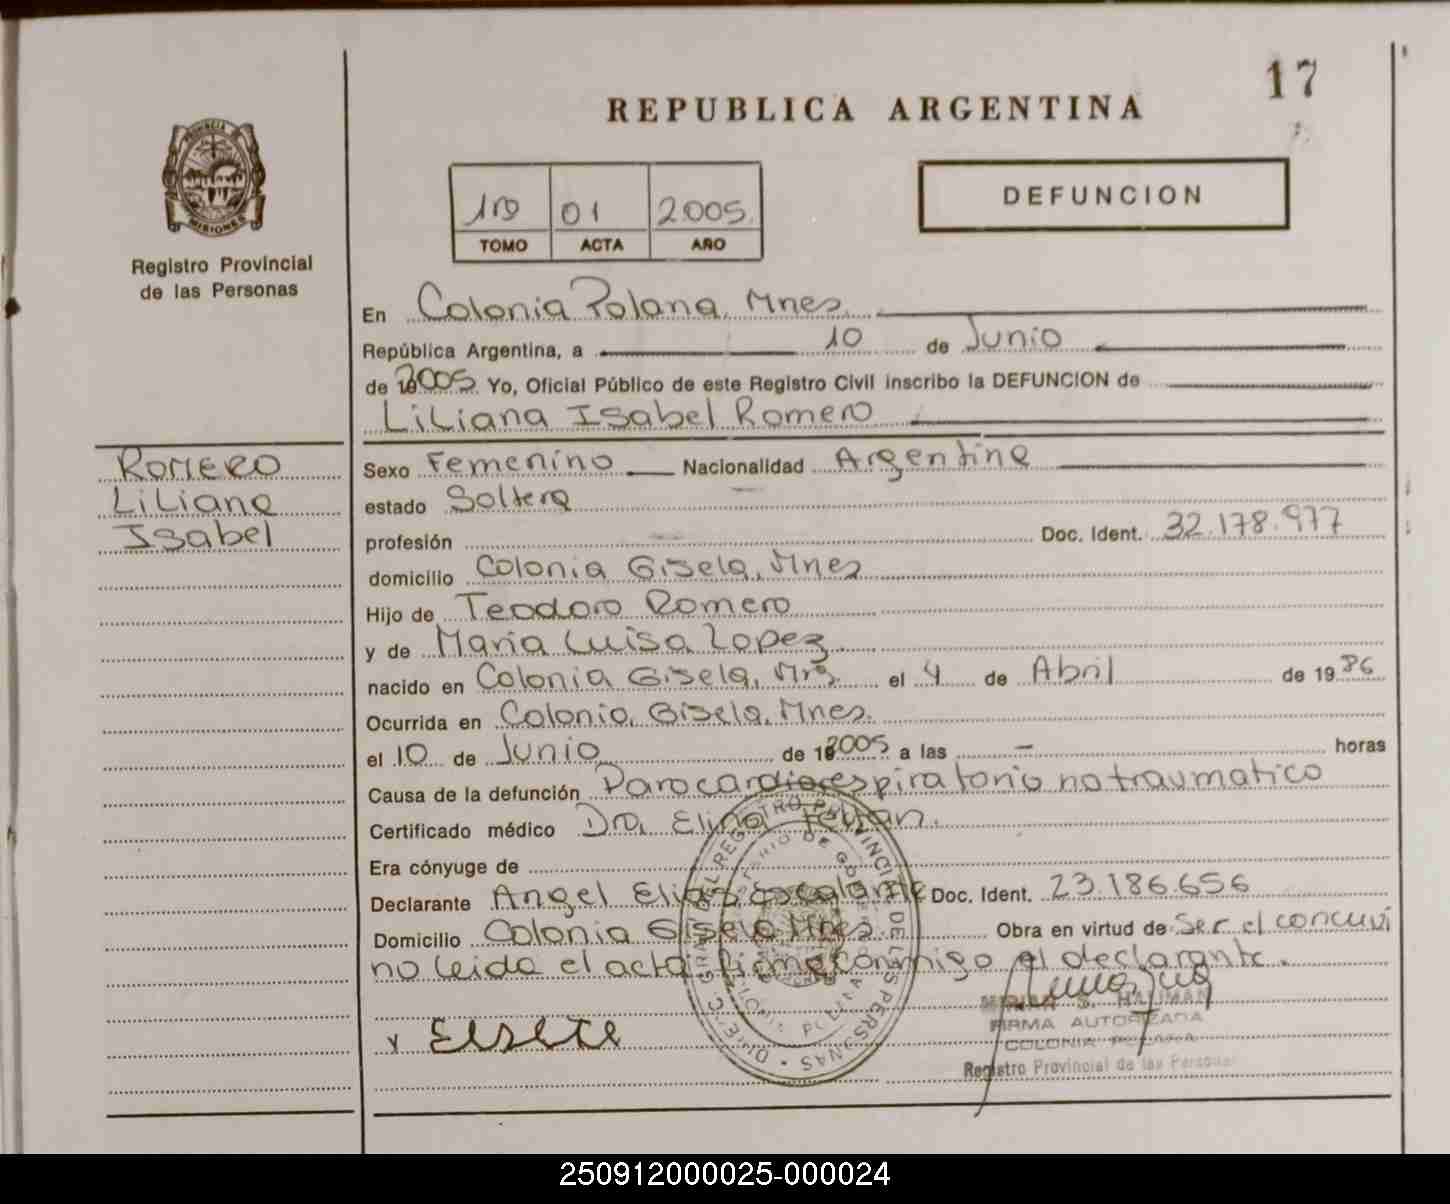 17
REPUBLICA ARGENTINA
DEFUNCION
1º 01 2005
TOMO ACTA AÑO
PROVINCIA DE
MISIONES
Registro Provincial
de las Personas
En Colonia Polana, Mnes.
República Argentina, a 10 de Junio
de 2005 Yo, Oficial Público de este Registro Civil inscribo la DEFUNCION de
Liliana Isabel Romero
ROMERO
Liliana
Isabel
Sexo Femenino Nacionalidad Argentina
estado Soltera
profesión Doc. Ident. 32.178.977
domicilio Colonia Gisela, Mnes
Hijo de Teodoro Romero
y de Maria Luisa Lopez
nacido en Colonia Gisela, Mns. el 4 de Abril de 1986
Ocurrida en Colonia Gisela, Mnes.
el 10 de Junio de 2005 a las - horas
Causa de la defunción Parocardiorespiratorio no traumatico
Certificado médico Dra. Elina
Era cónyuge de
Declarante Angel Elias Escalante Doc. Ident. 23.186.656
Domicilio Colonia Gisela Mnes. Obra en virtud de Ser el concuvi
no leida el acta firma conmigo el declarante.
MIRIAN S.
FIRMA AUTORIZADA
COLONIA POLANA
Registro Provincial de las Personas
DEL REGISTRO PROVINCIAL DE LAS PERSONAS
250912000025-000024